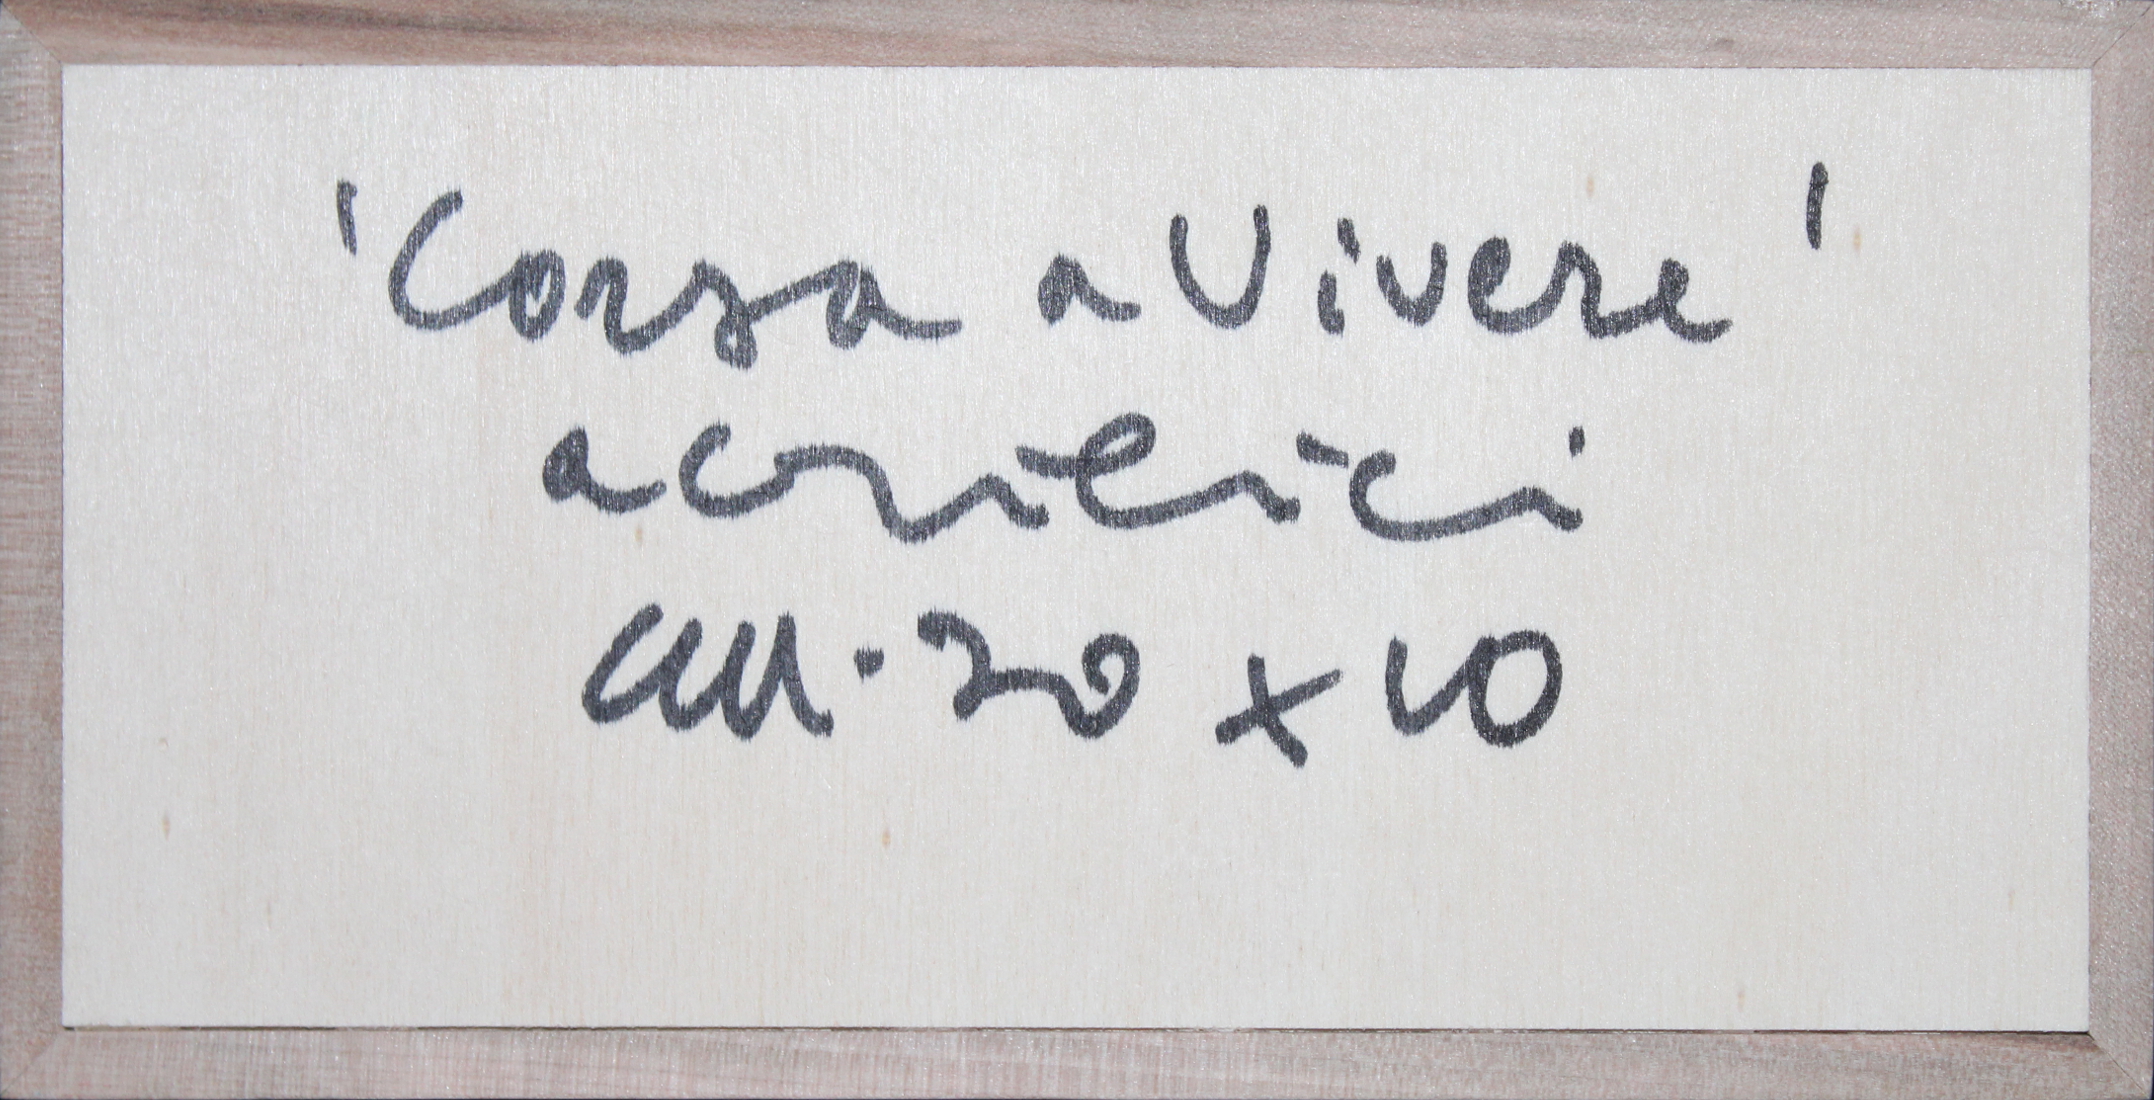 'Corsa a Vivere'
acrilici
cm. 20 x 10